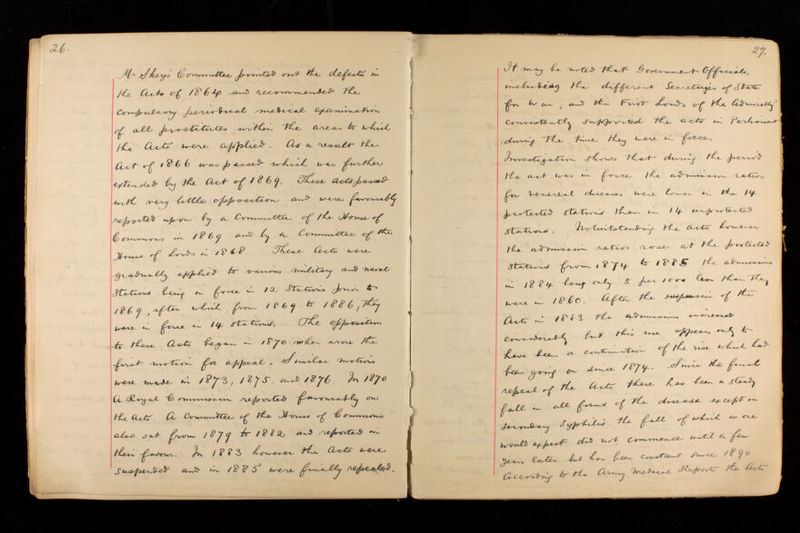 26.
Mr Skey's Committee pointed out the defects in
the Acts of 1864 and recommended the
compulsory periodical medical examination
of all prostitutes within the areas to which
the Acts were applied. As a result the
Act of 1866 was passed which was further
extended by the Act of 1869. These Acts passed
with very little opposition and were favourably
reported upon by a Committee of the House of
Commons in 1869 and by a Committee of the
House of Lords in 1868 These Acts were
gradually applied to various military and naval
Stations being in force in 12 Stations prior to
1869, after which, from 1869 to 1886, they
were in force in 14 stations. The opposition
to these Acts began in 1870 when arose the
first motion for appeal. Similar motions
were made in 1873, 1875, and 1876. In 1870
a Royal Commission reported favourably on
the Acts. A Committee of the House of Commons
also sat from 1879 to 1882 and reported in
their favour. In 1883 however the Acts were
suspended and in 1885 were finally repealed.
27.
It may be noted that Government Officials,
including the different Secretaries of State
for War, and the First Lords of the Admiralty
consistently supported the acts in Parliament
during the time they were in force.
Investigation shows that during the period
the act was in force the admission ratios
for venereal diseases were lower in the 14
protected stations than in 14 unprotected
stations. Notwithstanding the acts however
the admission ratios rose at the protected
stations from 1874 to 1885 the admissions
in 1884 being only 5 per 1000 less than they
were in 1860. After the suspension of the
Acts in 1883 the admissions increased
considerably but this rise appears only to
have been a continuation of the rise which had
been going on since 1874. Since the final
repeal of the Acts there has been a steady
fall in all forms of the disease except in
secondary Syphilis the fall of which as one
would expect did not commence until a few
years later but has been constant since 1890
According to the Army Medical Reports the Acts